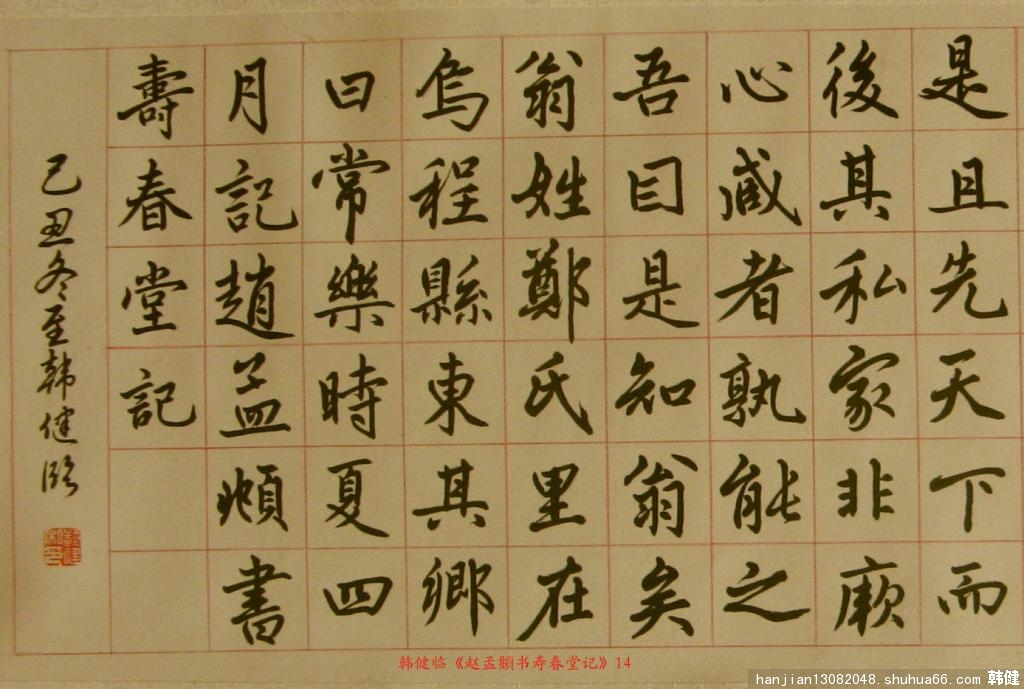 是且先天下而
後其私家非厥
心臧者孰能之
吾囙是知翁矣
翁姓鄭氏里在
烏程縣東其鄉
曰常樂時夏四
月記趙孟頫書
壽春堂記
己丑冬至韩健临
韩健临《赵孟頫书寿春堂记》14
hanjian13082048.shuhua66.com 韩健